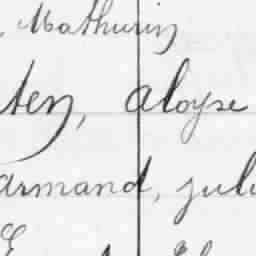 , Mathurin
ten, Aloyse
Armand, Juli